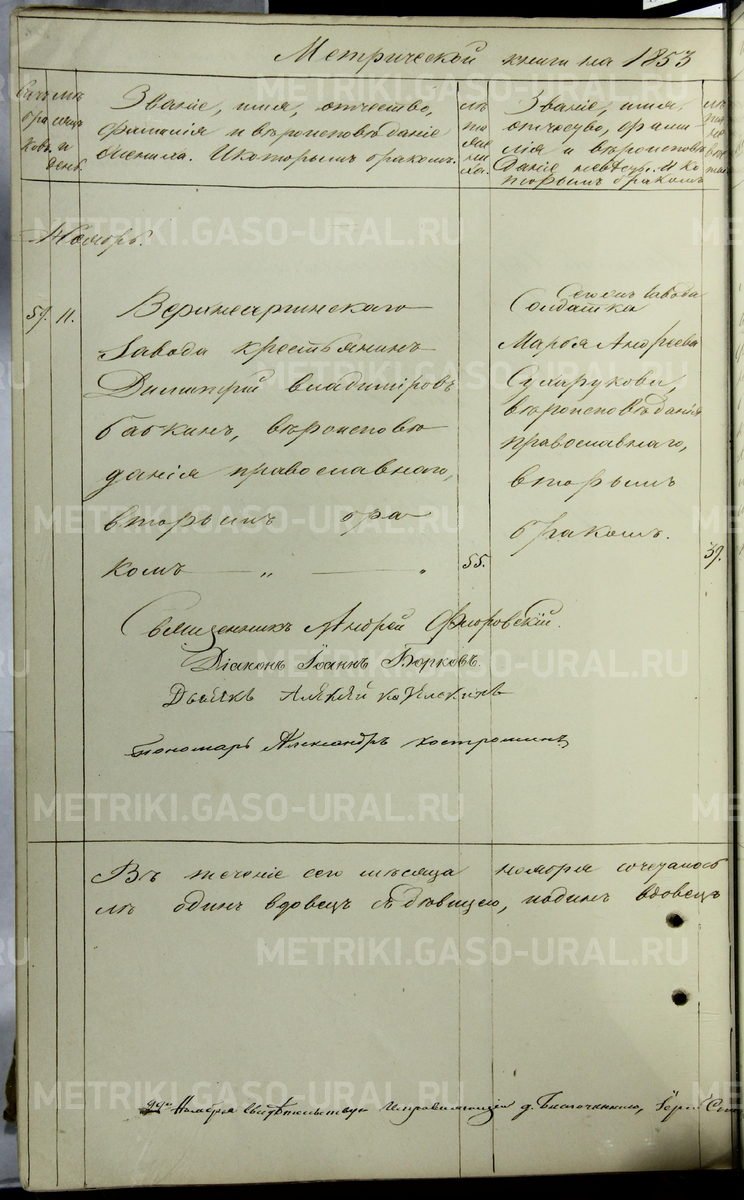 Метрической книги на 1853
Счетъ бра ковъ.
Мѣ сяцъ и день.
Званіе, имя, отчество,
фамилія и вѣроисповѣданіе
жениха. И которымъ бракомъ.
лѣ та же ни ха.
Званіе, имя,
отчество, фами
лія и вѣроисповѣ
даніе невѣсты. И ко
торымъ бракомъ
Ноябрь.
59. 11.
Верхнесергинскаго
завода крестьянинъ
Димитрій Владиміровъ
Бабкинъ, вѣроисповѣ
данія православнаго,
вторымъ бра
комъ — „ — „
55.
завода
Солдатка
Марѳа Андреева
Сумарукова,
вѣроисповѣданія
православнаго,
вторымъ
бракомъ.
39.
Священникъ Андрей Флоровскій.
Діаконъ Іоаннъ Борковъ.
Дьячекъ Алексѣй
Пономарь Александръ Костроминъ
Въ теченіе сего мѣсяца ноября сочеталось
одинъ вдовецъ съ дѣвицею, иодинъ вдовецъ
Ноября свидѣтельствую Исправляющій д. Благочиннаго,
METRIKI.GASO-URAL.RU